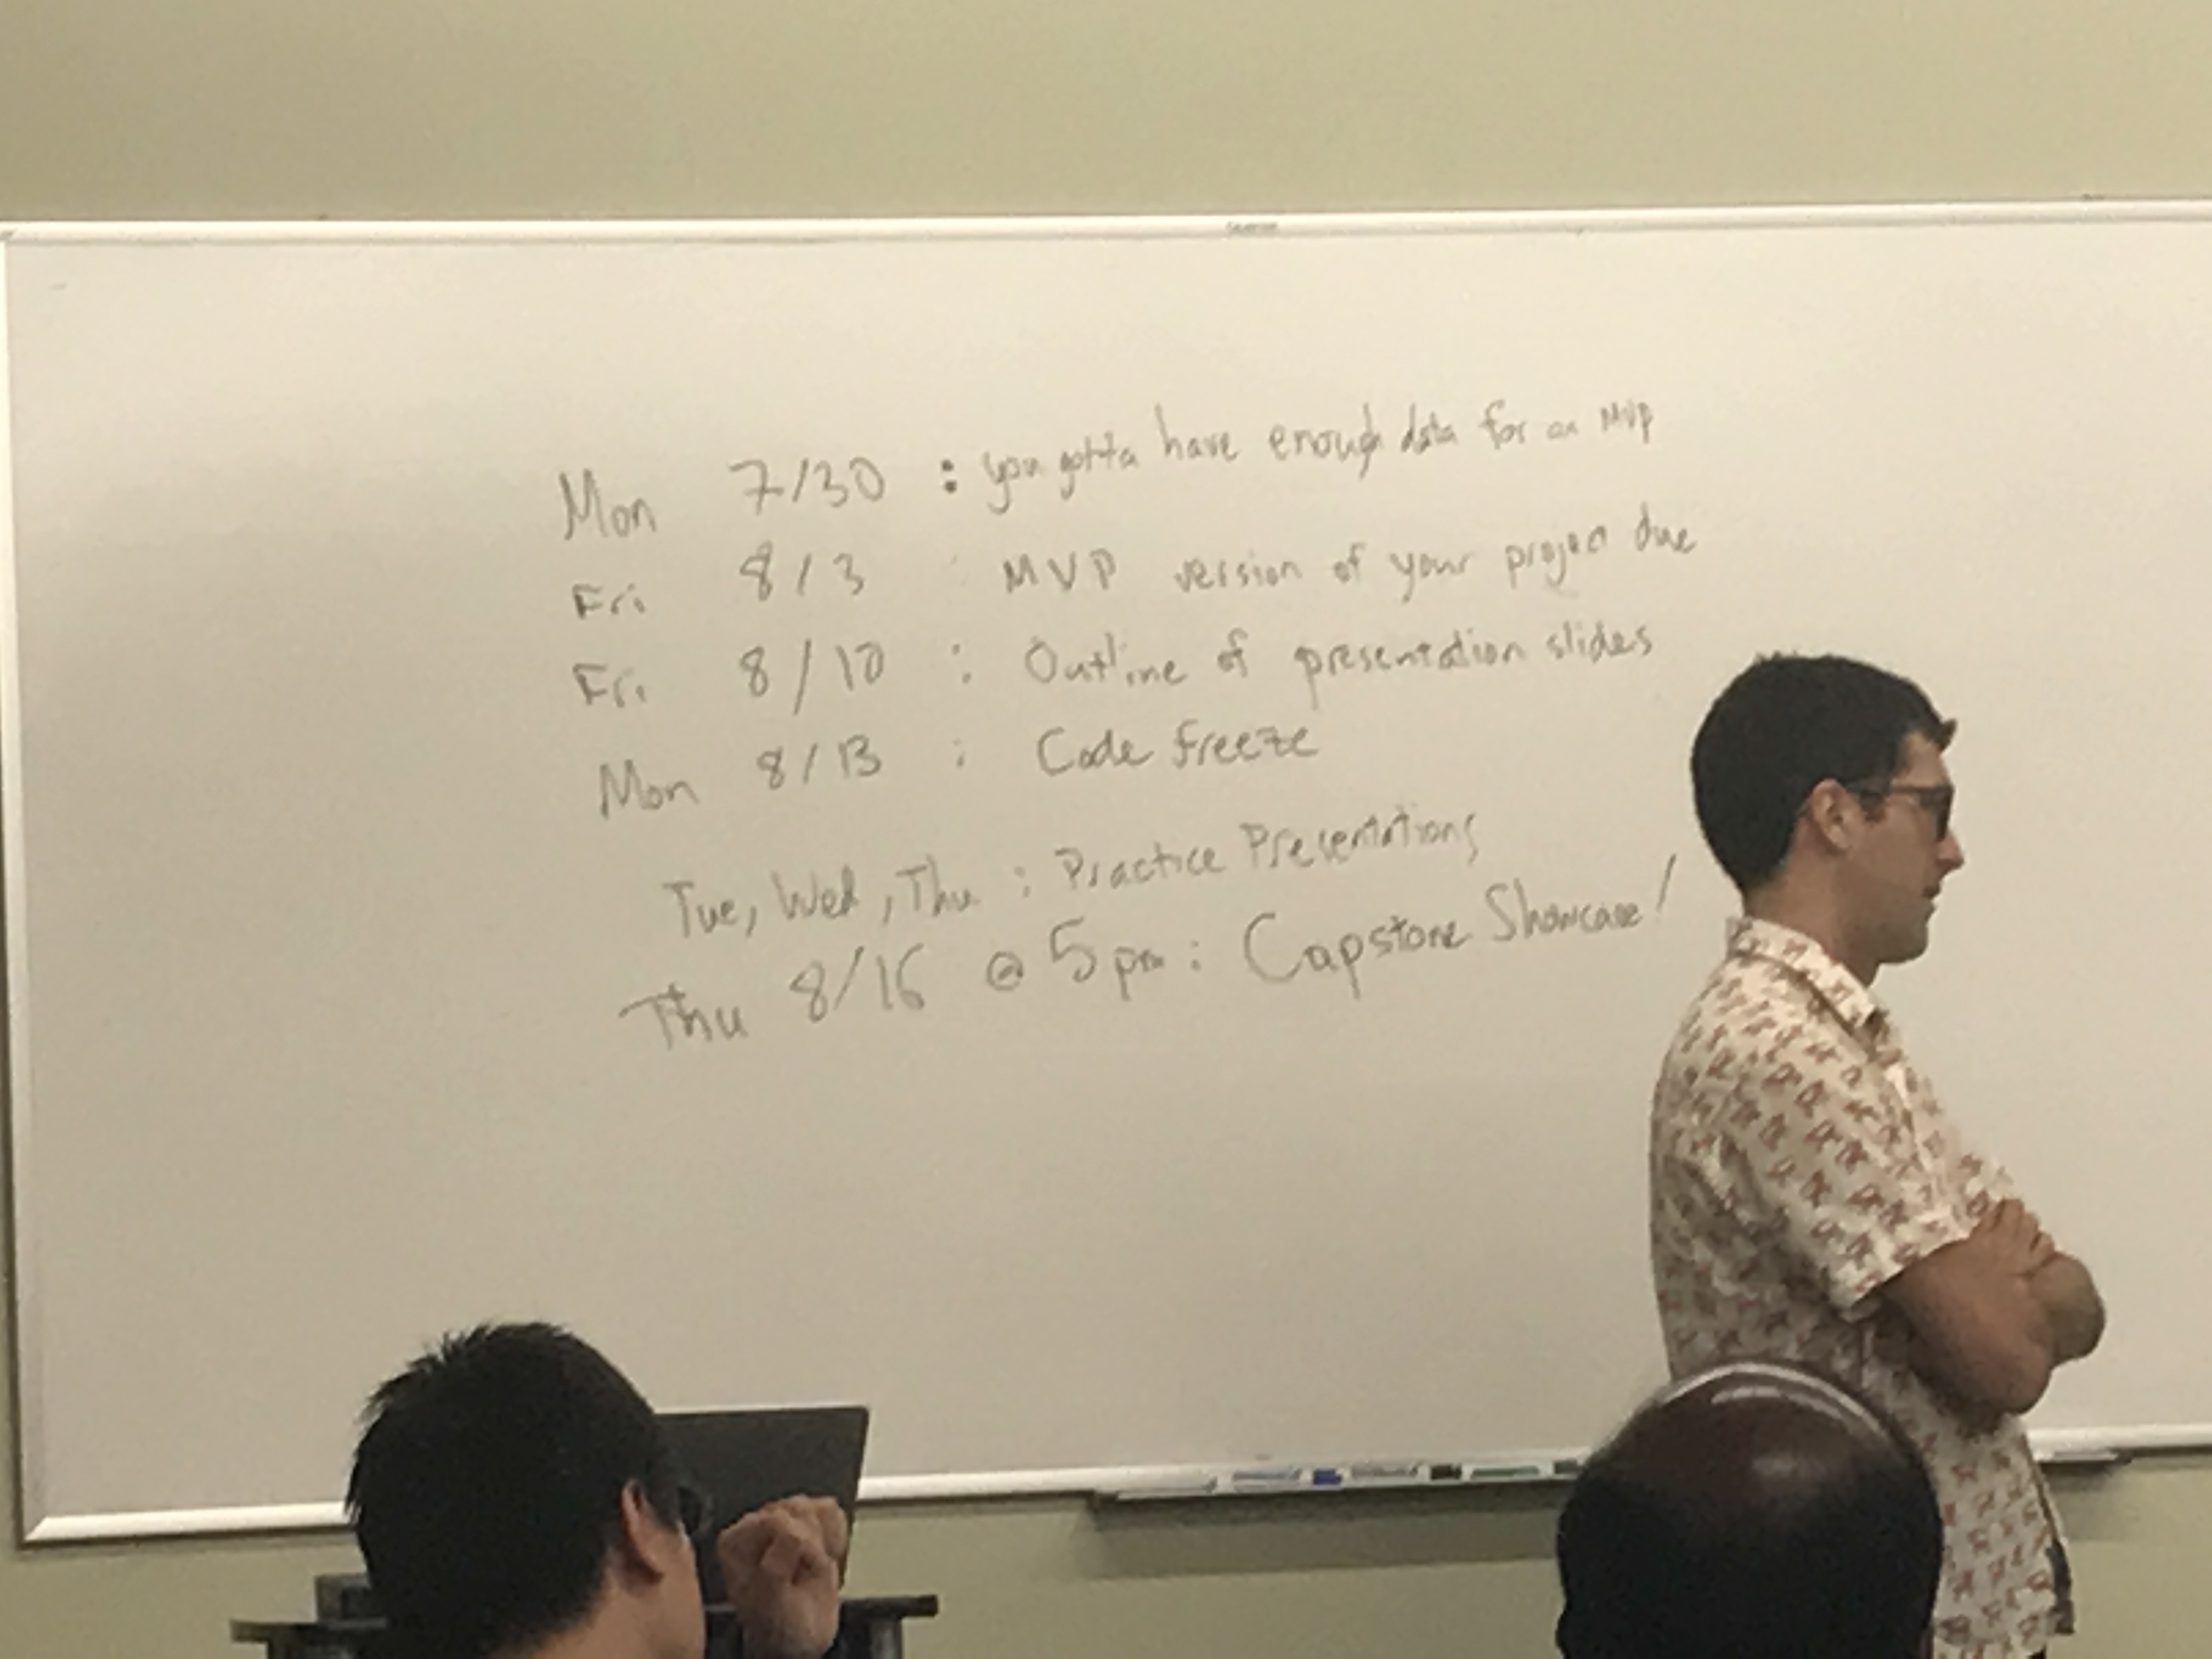 Mon 7/30 : you gotta have enough data for an MVP
Fri 8/3 : MVP version of your project due
Fri 8/10 : Outline of presentation slides
Mon 8/13 : Code freeze
Tue, Wed, Thu : Practice Presentations
Thu 8/16 @ 5pm : Capstone Showcase!